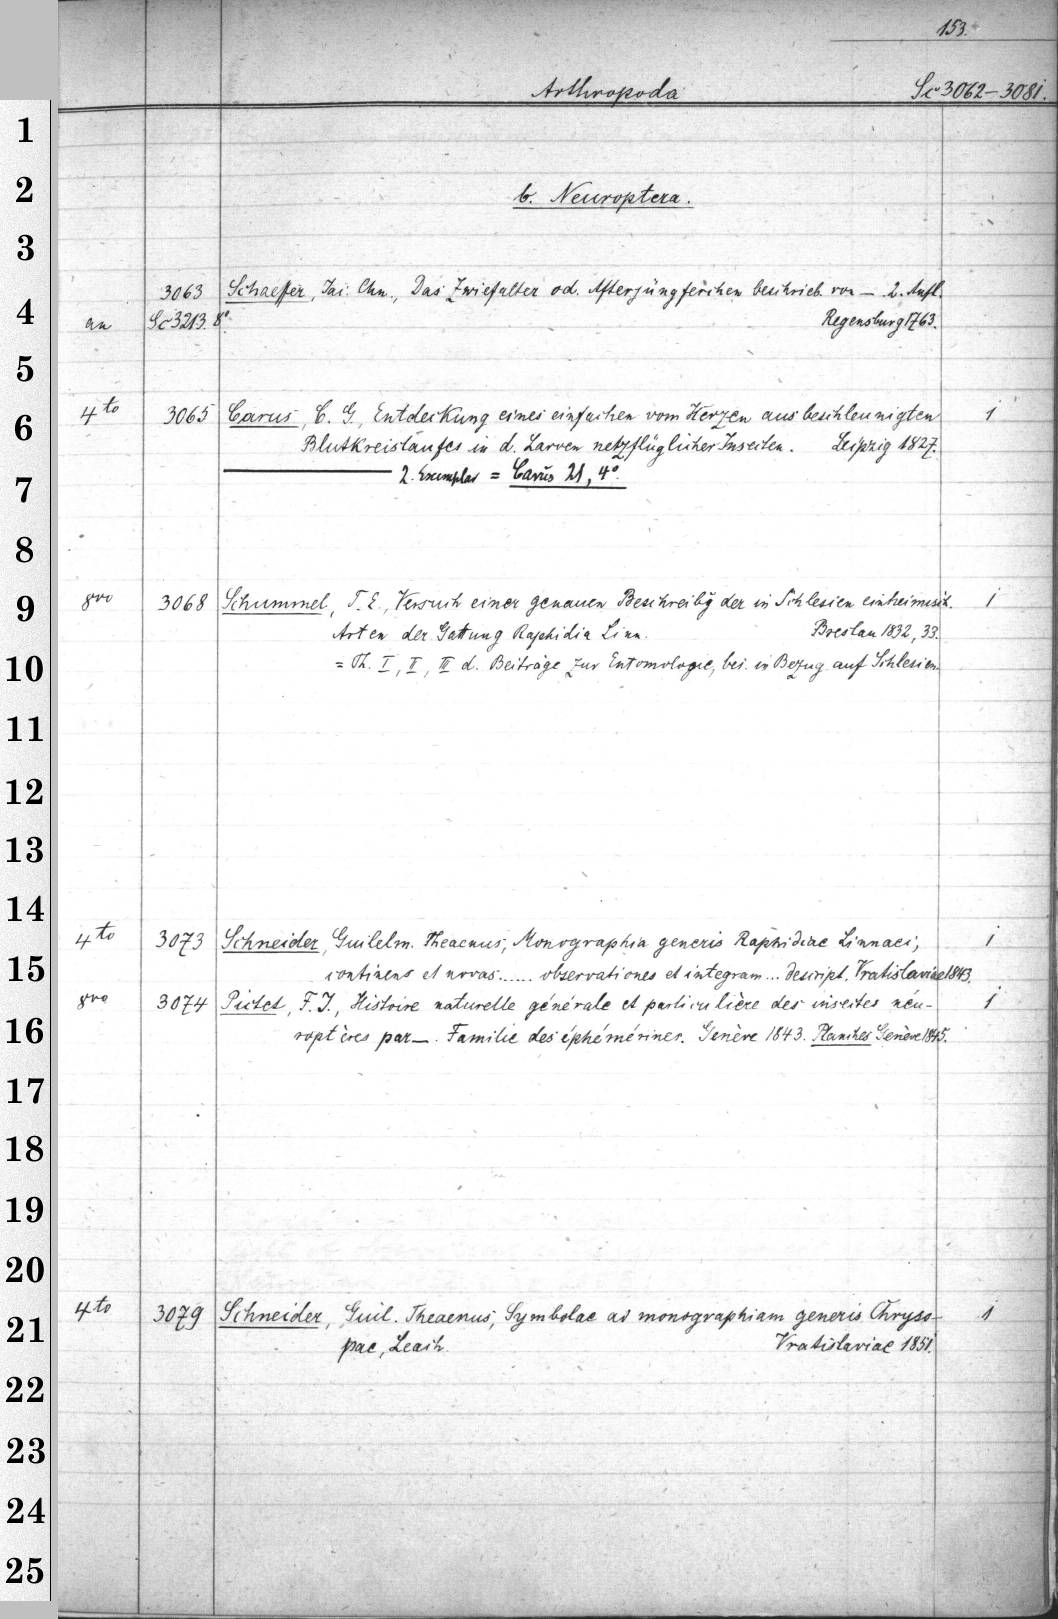 153.
Arthropoda Sc 3062–3081.
1
2 b. Neuroptera.
3
3063 Schaeffer, Jac. Chn., Das Zwiefalter od. Afterjüngferchen beschrieb. von —. 2. Aufl.
4 an Sc 3213. 8°. Regensburg 1763.
5
6 4to 3065 Carus, C. G., Entdeckung eines einfachen vom Herzen aus beschleunigten 1
Blutkreislaufes in d. Larven netzflüglicher Insecten. Leipzig 1827.
7 2. Exemplar = Carus 21, 4°.
8
9 8vo 3068 Schummel, T. E., Versuch einer genauen Beschreibg der in Schlesien einheimisch. 1
Arten der Gattung Raphidia Linn. Breslau 1832, 33.
10 = Th. I, II, III d. Beiträge zur Entomologie, bes. in Bezug auf Schlesien
11
12
13
14
4to 3073 Schneider, Guilelm. Theaenus, Monographia generis Raphidiae Linnaei, 1
15 continens et novas...... observationes et integram... descript. Vratislaviae 1843.
8vo 3074 Pictet, F. J., Histoire naturelle générale et particulière des insectes neu- 1
16 roptères par —. Famille des éphémérines. Genève 1843. Planches Genève 1845.
17
18
19
20
21 4to 3079 Schneider, Guil. Theaenus, Symbolae ad monographiam generis Chryso- 1
pae, Leach. Vratislaviae 1851.
22
23
24
25